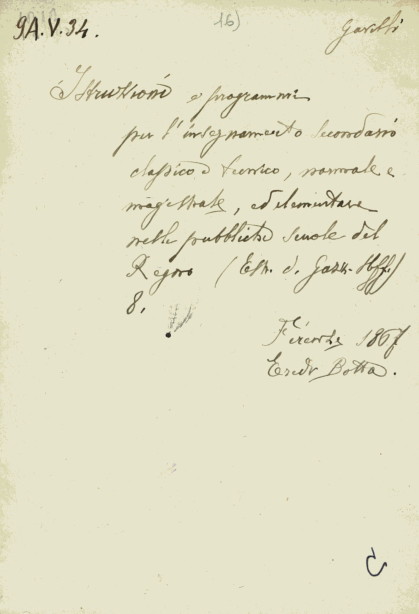 9A.V.34.
16)
Garelli
Istruzioni e programmi
per l'insegnamento secondario
classico e tecnico, normale e
magistrale, ed elementare
nelle pubbliche scuole del
Regno (Estr. d. Gazz. Uff.)
8.
Firenze 1867
Eredi Botta.